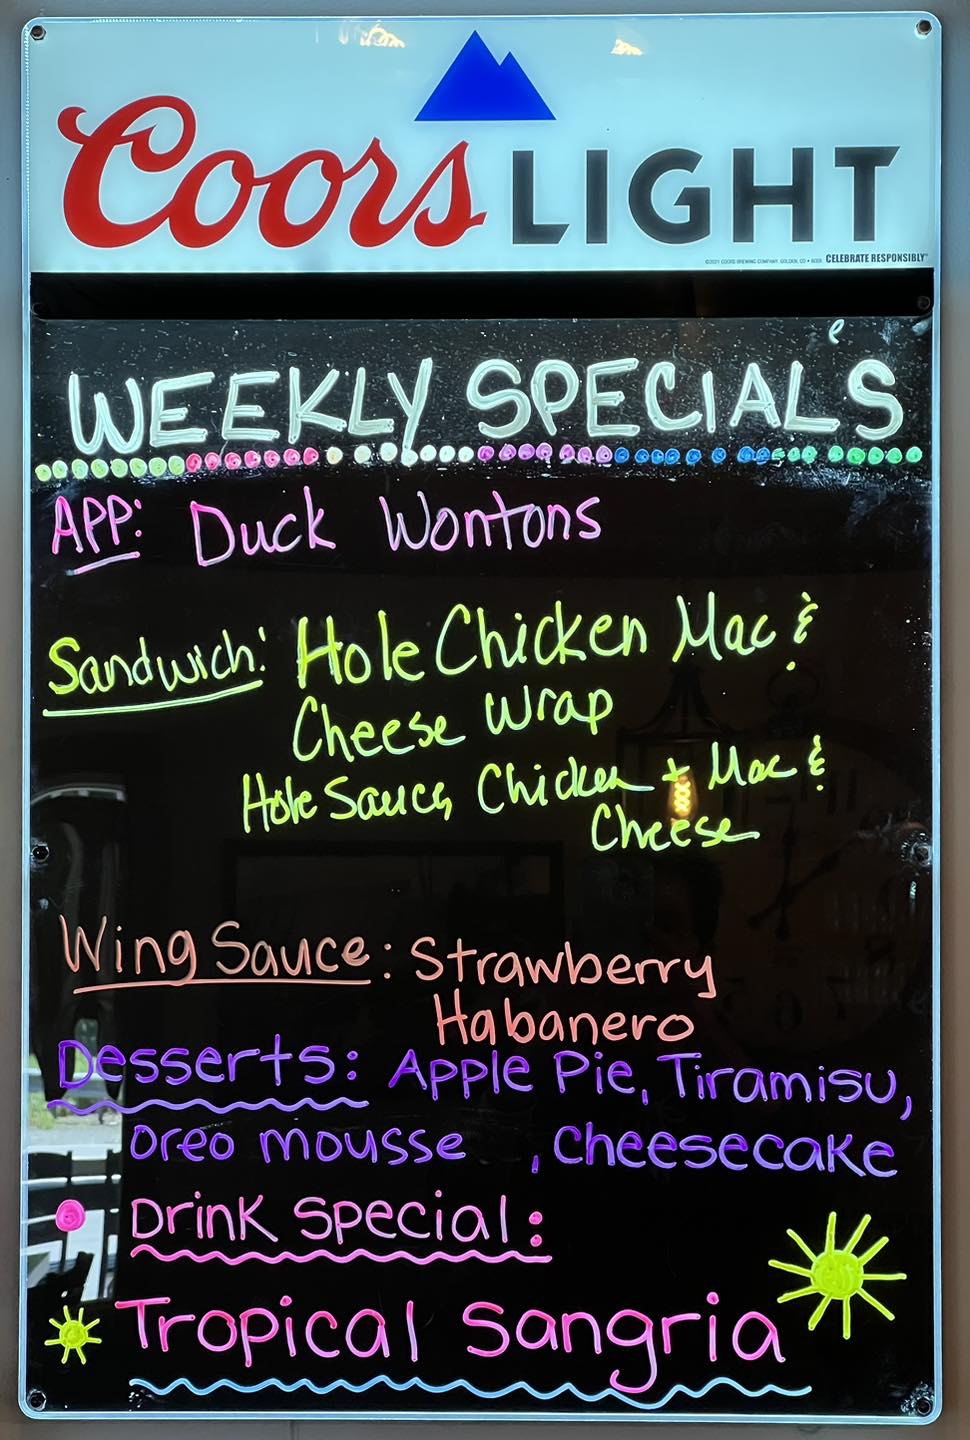 Coors LIGHT
©2021 COORS BREWING COMPANY, GOLDEN, CO • BEER CELEBRATE RESPONSIBLY®
e
WEEKLY SPECIALS
APP: Duck Wontons
Sandwich: Hole Chicken Mac &
Cheese Wrap
Hole Sauce, Chicken + Mac &
Cheese
Wing Sauce: Strawberry
Habanero
Desserts: Apple Pie, Tiramisu,
Oreo mousse , Cheesecake
Drink Special:
Tropical Sangria